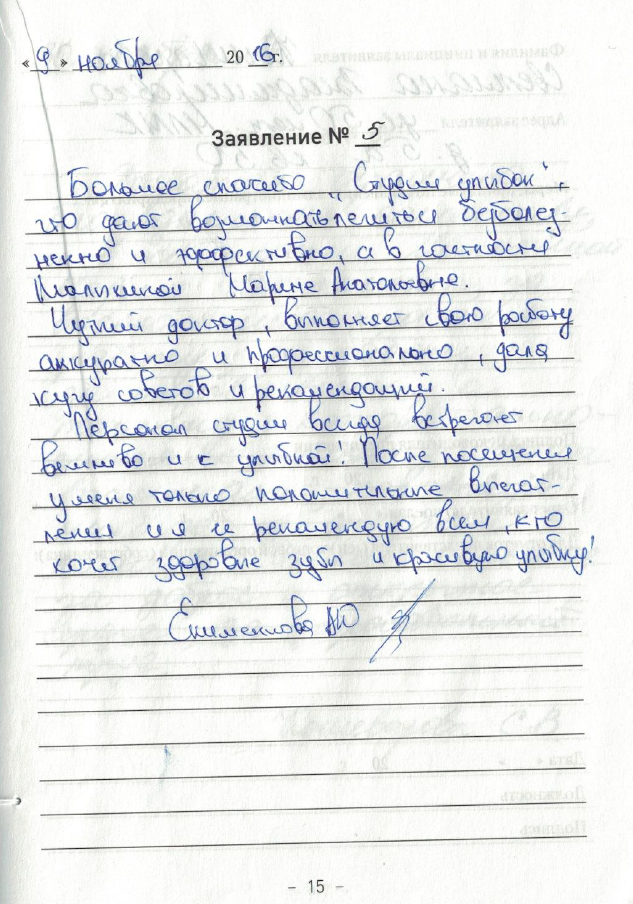 «9» ноября 2016г.
Заявление № 5
Большое спасибо „Студии улыбок",
что дают возможность лечиться безболез-
ненно и эффективно, а в частности
Марине Анатольевне.
Чуткий доктор, выполняет свою работу
аккуратно и профессионально, дала
кучу советов и рекомендаций.
Персонал студии всегда встречает
вежливо и с улыбкой! После посещения
у меня только положительные впечат-
ления и я рекомендую всем, кто
хочет здоровые зубы и красивую улыбку!
АЮ
- 15 -